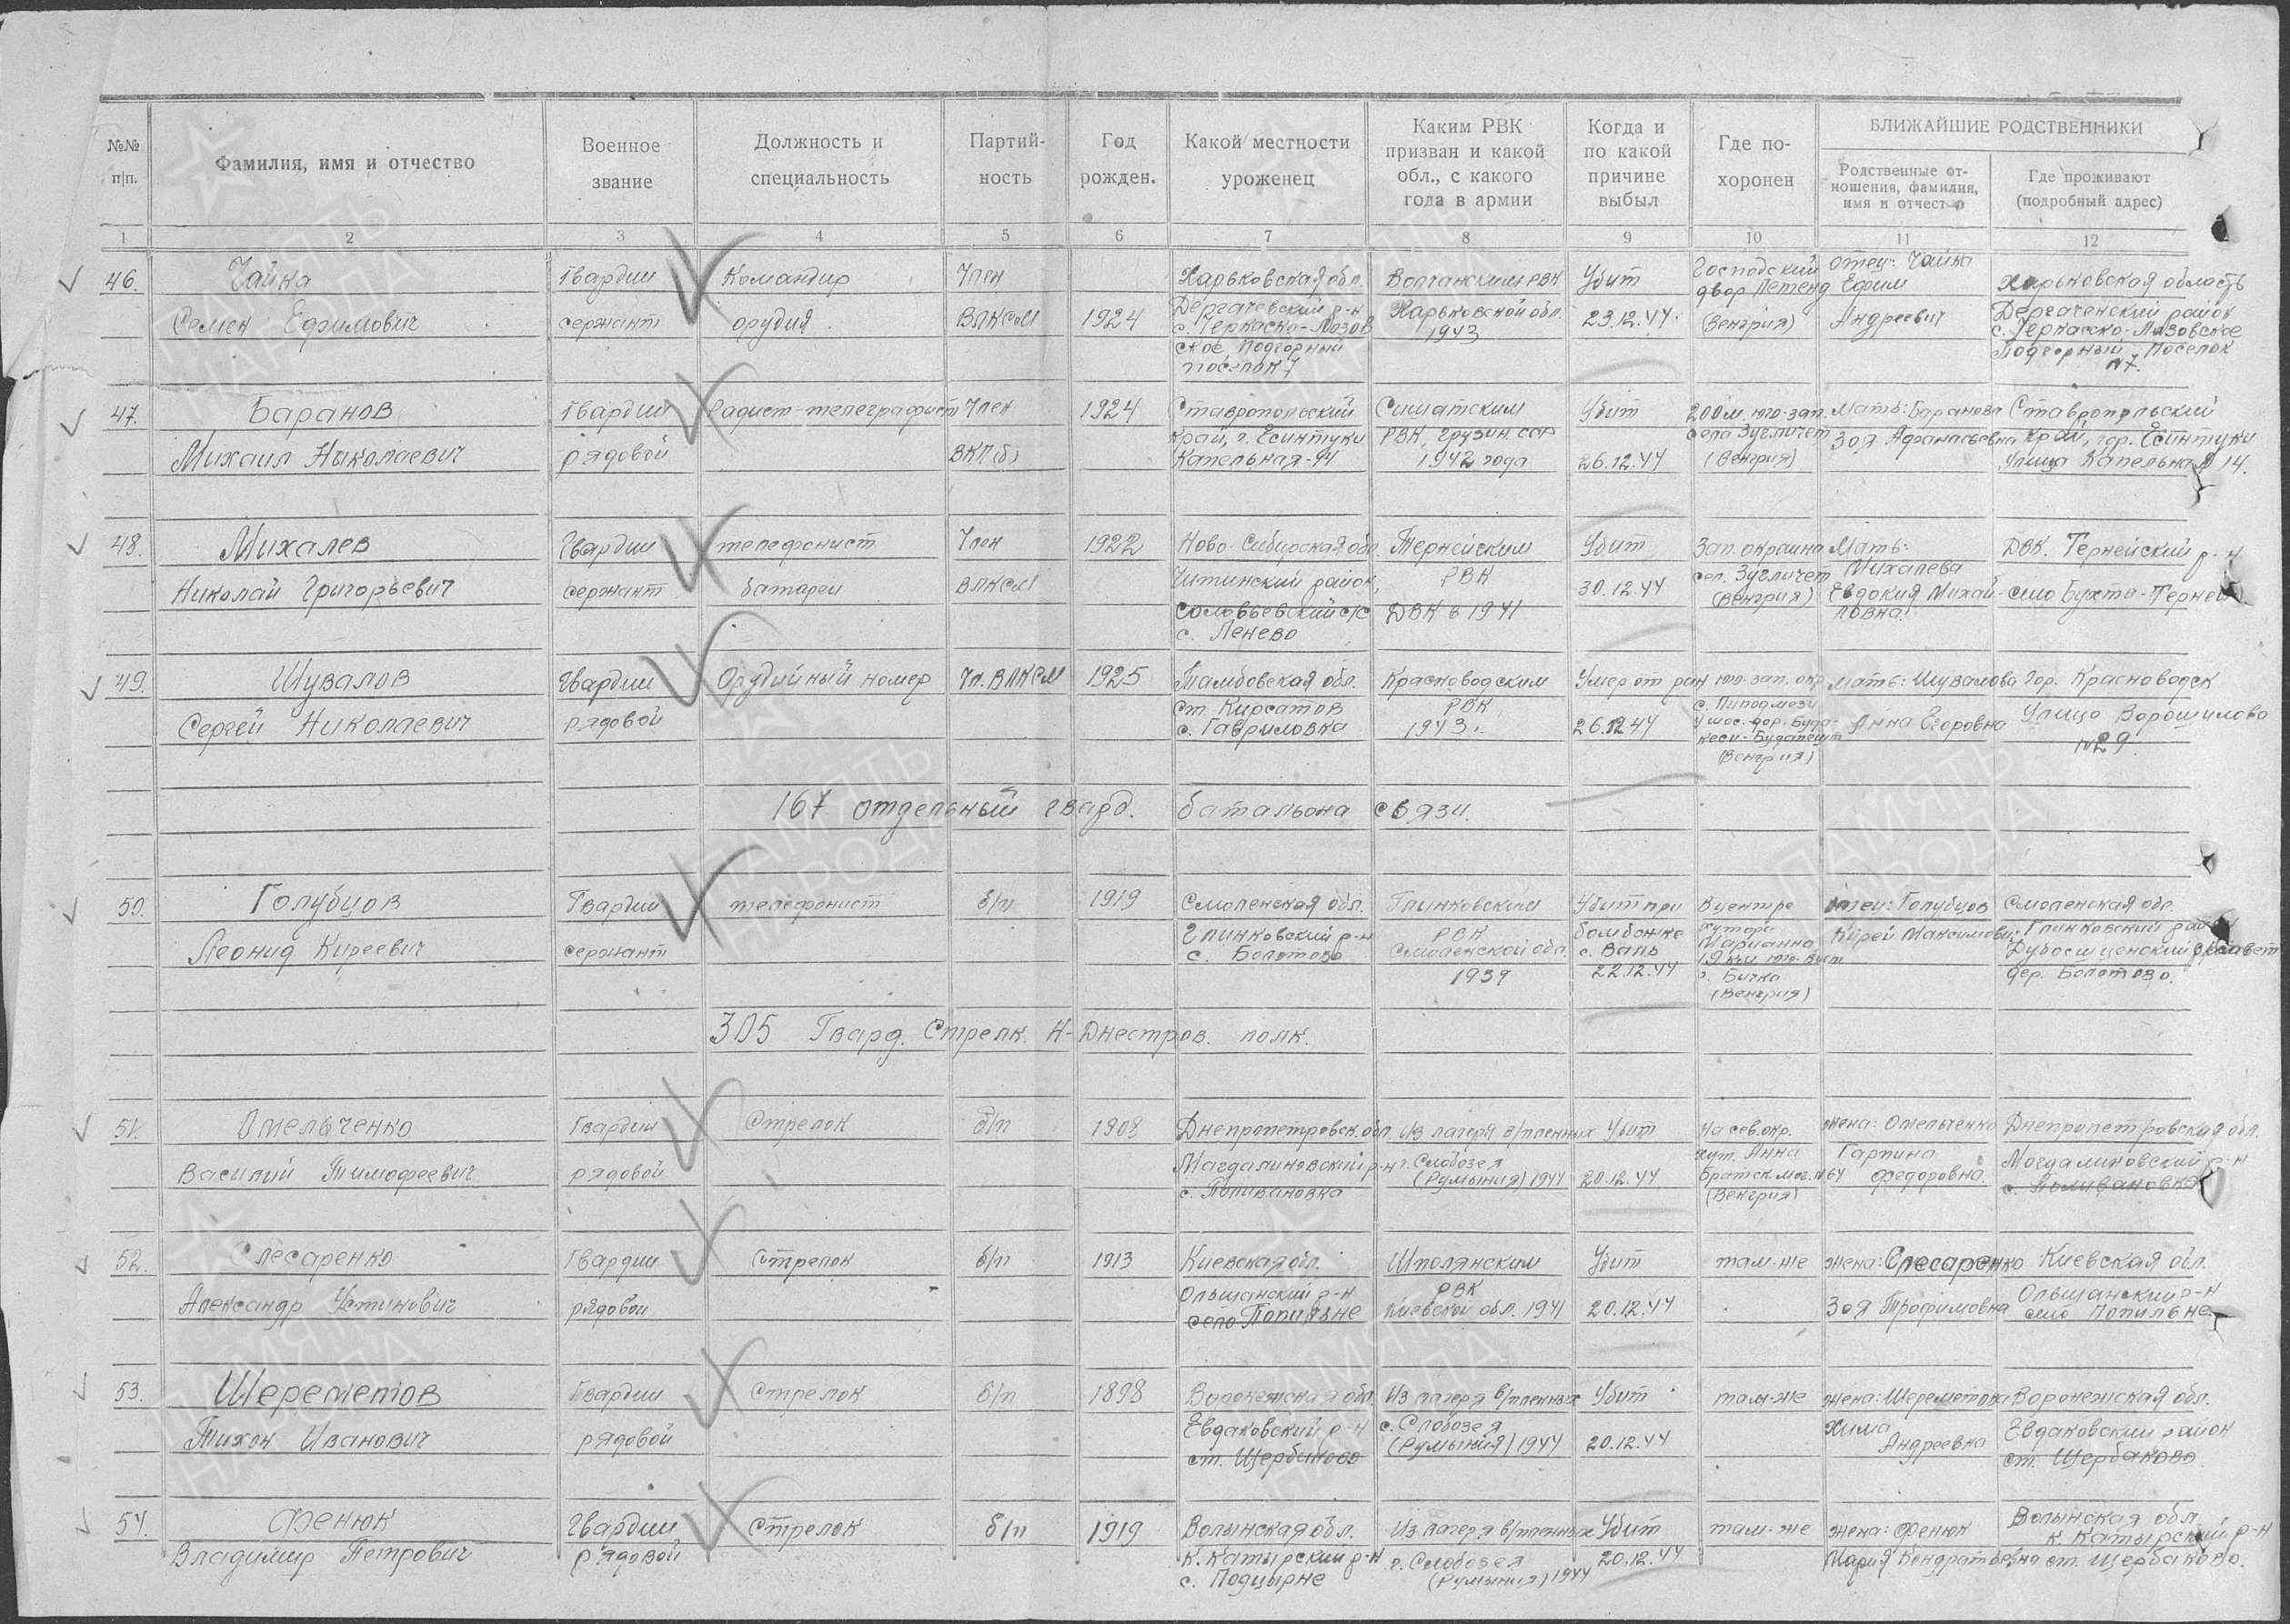 №№ п/п.
Фамилия, имя и отчество
Военное звание
Должность и специальность
Партий-ность
Год рожден.
Какой местности уроженец
Каким РВК призван и какой обл., с какого года в армии
Когда и по какой причине выбыл
Где по-хоронен
БЛИЖАЙШИЕ РОДСТВЕННИКИ
Родственные от-ношения, фамилия, имя и отчест-о
Где проживают (подробный адрес)
1 2 3 4 5 6 7 8 9 10 11 12
46.
Чайка
Семен Ефимович
Гвардии
сержант
Командир
орудия
Член
ВЛКСМ
1924
Харьковская обл.
Дергачевский р-н
с. Черкаско-Лозов
ское, Подгорный
поселок 7
Волчанским РВК
Харьковской обл.
1943
Убит
23.12.44.
Господский
двор Петенд
(Венгрия)
отец: Чайка
Ефим
Андреевич
Харьковская область
Дергаченский район
с. Черкаско-Лозовское
Подгорный поселок
№7.
47.
Баранов
Михаил Николаевич
Гвардии
рядовой
Радист-телеграфист
Член
ВКП(б)
1924
Ставропольский
край, г. Есинтуки
Капельная-14
РВК, Грузин. ССР
1942 года
Убит
26.12.44
200 м. юго-зап.
села Зугличет
(Венгрия)
Мать: Баранова
Зоя Афанасьевна
Ставропольский
край, гор. Есинтуки
Улица Капельная 14.
48.
Михалев
Николай Григорьевич
Гвардии
сержант
телефонист
батареи
Член
ВЛКСМ
1922
Ново-Сибирская обл.
Читинский район,
Соловьевский с/с
с. Ленево
Тернейским
РВК
ДВК в 1941
Убит
30.12.44
Зап. окраина
сел. Зугличет
(Венгрия)
Мать:
Михалева
Евдокия Михай-
ловна.
ДВК. Тернейский р-н
село Бухта-Терней
49.
Шувалов
Сергей Николаевич
Гвардии
рядовой
Орудийный номер
Чл. ВЛКСМ
1925
Тамбовская обл.
ст. Кирсатов
с. Гавриловка
Красноводским
РВК
1943 г.
Умер от ран
26.12.44
юго-зап. окр.
(Венгрия)
Мать: Шувалова
Анна Егоровна
Гор. Красноводск
Улица Ворошилова
№29.
167 отдельный гвард. батальона связи.
50.
Голубцов
Леонид Киреевич
Гвардии
сержант
телефонист
б/п
1919
Смоленская обл.
Глинковский р-н
с. Болотово
Глинковским
РВК
Смоленской обл.
1939
Убит при
бомбежке
с. Валь
22.12.44
В центре
хутора
Марианна
г. Бичка
(Венгрия)
отец: Голубцов
Кирей Максимович
Смоленская обл.
Глинковский район
дер. Болотово.
305 Гвард. Стрелк. Н-Днестров. полк.
51.
Омельченко
Василий Тимофеевич
Гвардии
рядовой
Стрелок
б/п
1908
Днепропетровск. обл
Магдалиновский р-н
с. Поливановка
Из лагеря в/пленных
г. Слобозея
(Румыния) 1944
Убит
20.12.44
на сев. окр.
хут. Анна
братск. мог. №64
(Венгрия)
жена: Омельченко
Гарпина
Федоровна
Днепропетровская обл.
Магдалиновский р-н
с. Поливановка
52.
Слесаренко
Александр Устинович
Гвардии
рядовой
Стрелок
б/п
1913
Киевская обл.
Ольшанский р-н
село Попильне
Шполянским
РВК
Киевской обл. 1941
Убит
20.12.44
там-же
жена: Слесаренко
Зоя Трофимовна
Киевская обл.
Ольшанский р-н
село Попильне
53.
Шереметов
Тихон Иванович
Гвардии
рядовой
Стрелок
б/п
1898
Воронежская обл.
Евдаковский р-н
ст. Щербаково
Из лагеря в/пленных
с. Слобозея
(Румыния) 1944
Убит
20.12.44
там-же
жена: Шереметова
Хима
Андреевна
Воронежская обл.
Евдаковский район
ст. Щербаково
54.
Фенюк
Владимир Петрович
Гвардии
рядовой
Стрелок
б/п
1919
Волынская обл.
К. Катырский р-н
с. Подцырне
Из лагеря в/пленных
г. Слобозея
(Румыния) 1944
Убит
20.12.44
там-же
жена: Фенюк
Мария Кондратьевна
Волынская обл.
К. Катырский р-н
ст. Щербаково.
ПАМЯТЬ НАРОДА